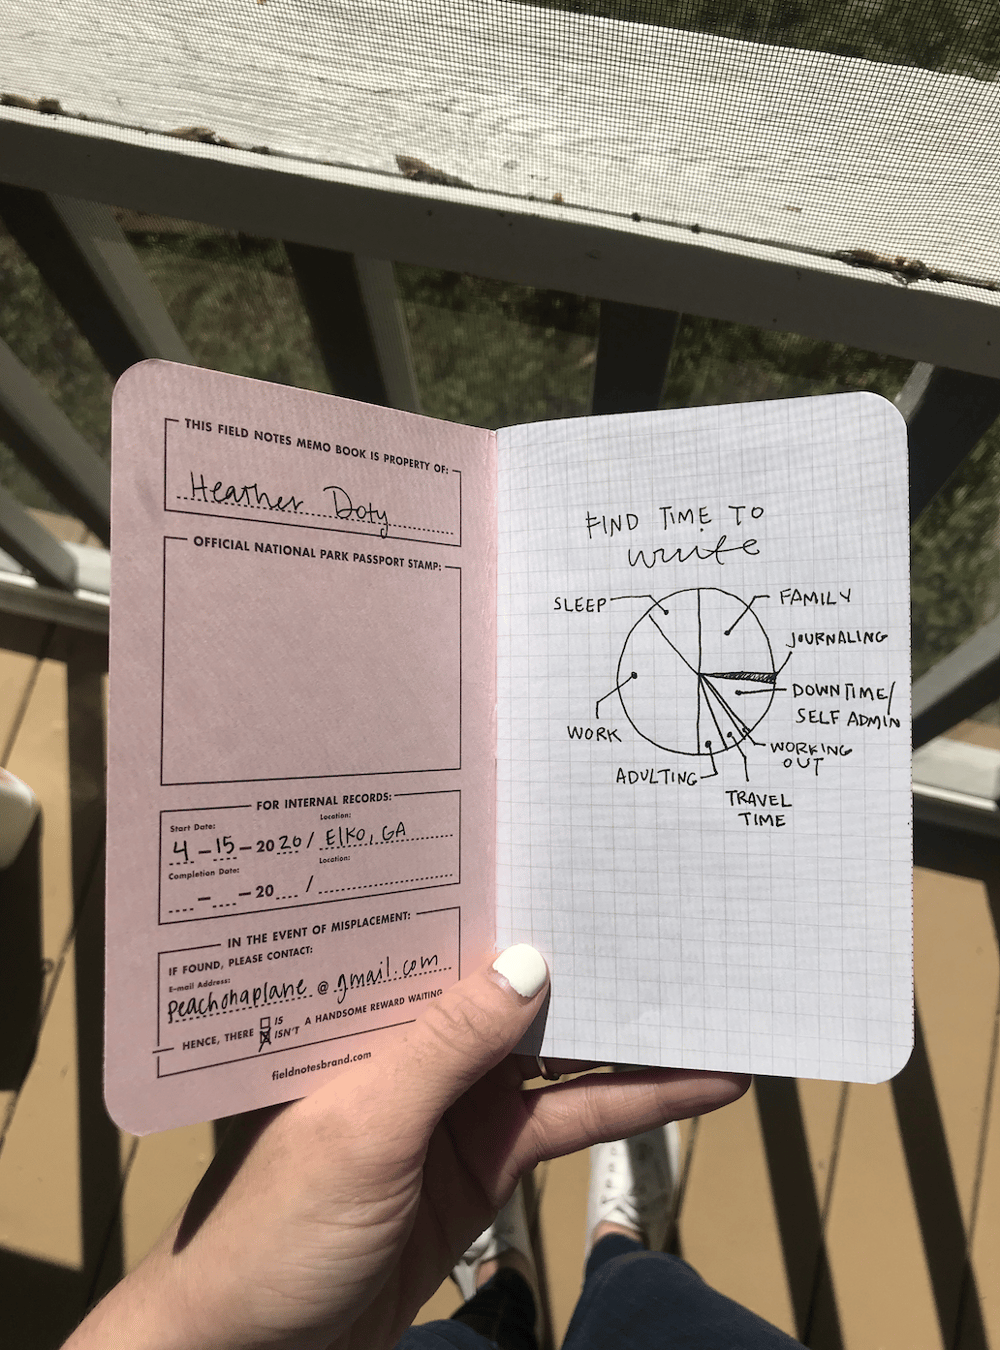 THIS FIELD NOTES MEMO BOOK IS PROPERTY OF:
Heather Doty
OFFICIAL NATIONAL PARK PASSPORT STAMP:
FOR INTERNAL RECORDS:
Start Date:
Location:
4 – 15 – 20 20 / Elko, GA
Completion Date:
Location:
– – 20 /
IN THE EVENT OF MISPLACEMENT:
IF FOUND, PLEASE CONTACT:
E-mail Address:
peachonaplane @ gmail.com
HENCE, THERE
IS
ISN'T
A HANDSOME REWARD WAITING
fieldnotesbrand.com
FIND TIME TO
write
SLEEP
FAMILY
JOURNALING
DOWNTIME/
SELF ADMIN
WORKING
OUT
TRAVEL
TIME
ADULTING
WORK